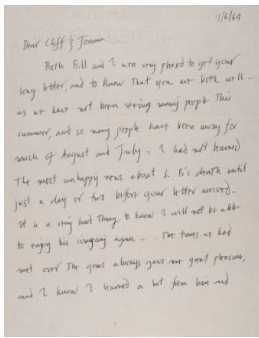 7/6/69
Dear Cliff & Joanna
Both Bill and I are very pleased to get your
long letter, and to know that you are both well –
as we have not been seeing many people this
summer, and so many people have been away for
much of August and July. I had not learned
the most unhappy news about L. B's death until
just a day or two before your letter arrived.
It is a very hard thing to know I will not be able
to enjoy his company again – . The times we had
met over the years always gave me great pleasure,
and I know I learned a lot from him and